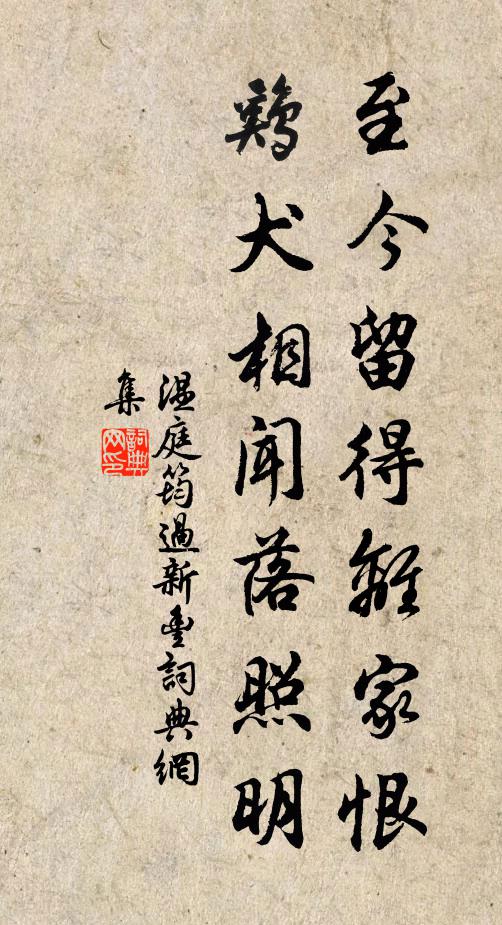 至今留得離家恨
鷄犬相聞落照明
溫庭筠過新豐詞典網
集
詞典
网印